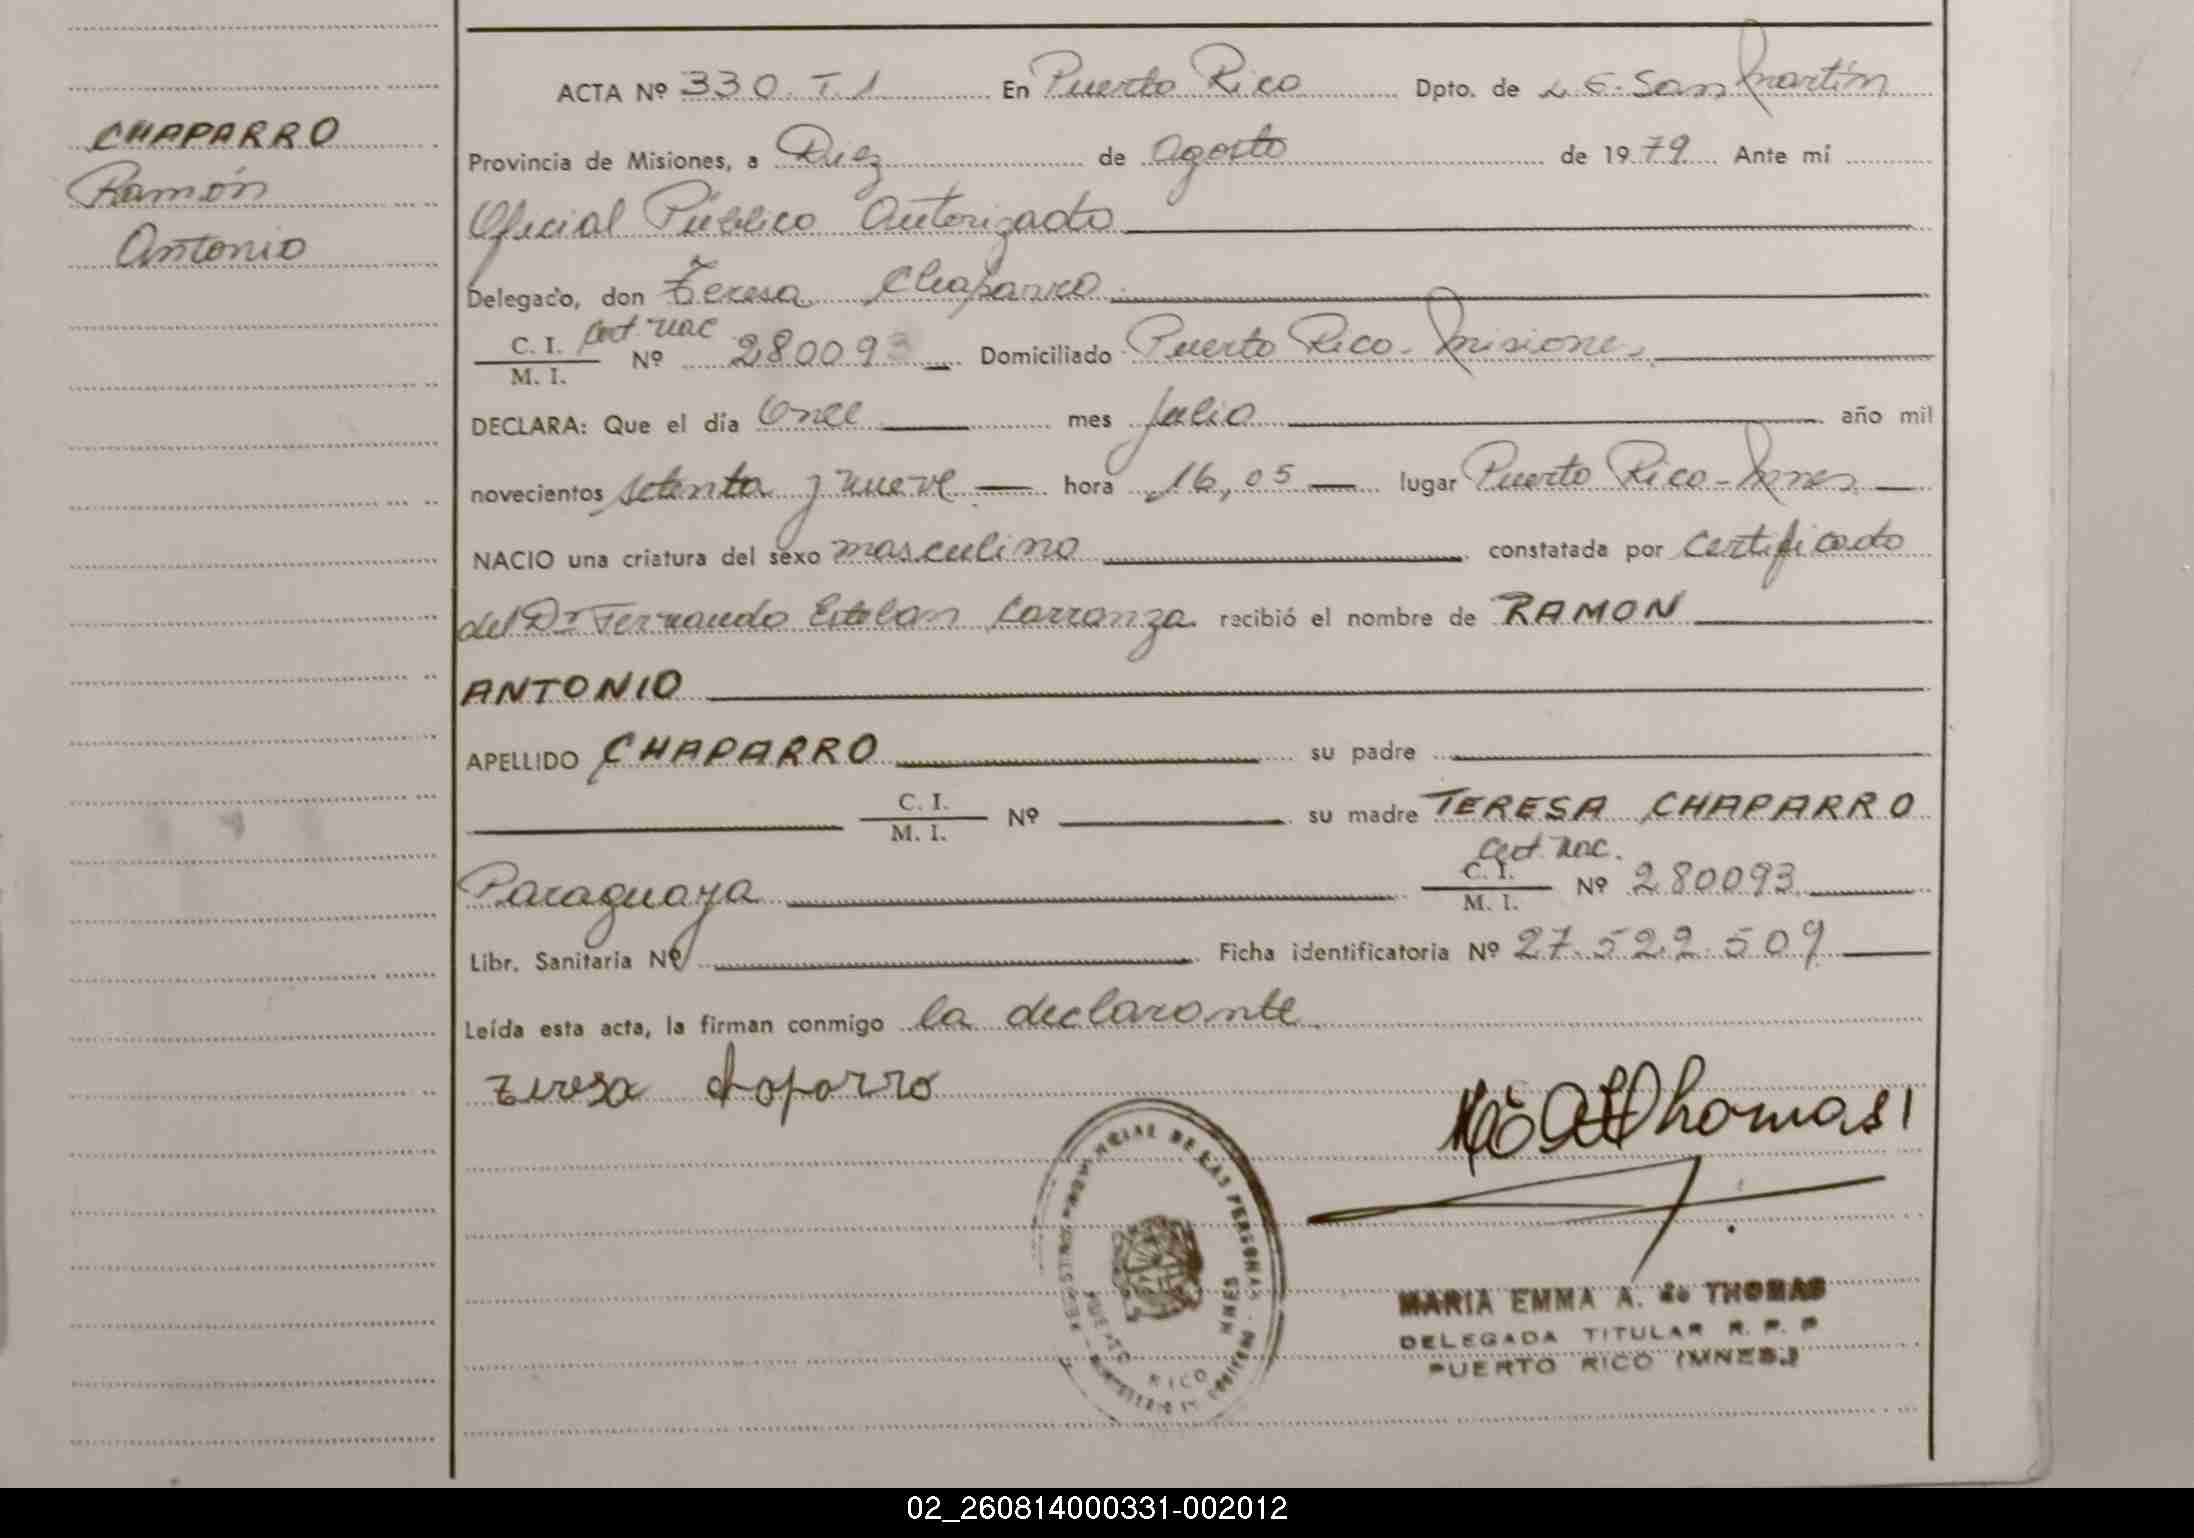 CHAPARRO
Ramón
Antonio
ACTA Nº 330. T 1 En Puerto Rico Dpto. de L G. San Martín
Provincia de Misiones, a Diez de agosto de 1979 Ante mí
Oficial Público Autorizado
Delegado, don Teresa Chaparro
C. I. cert. nac
M. I. Nº 280093 Domiciliado Puerto Rico - Misiones
DECLARA: Que el día Once mes Julio año mil
novecientos setenta y nueve hora 16,05 lugar Puerto Rico - Mnes
NACIO una criatura del sexo masculino constatada por certificado
del Dr Fernando Esteban Carranza recibió el nombre de RAMON
ANTONIO
APELLIDO CHAPARRO su padre
C. I.
M. I. Nº su madre TERESA CHAPARRO
cert. nac.
Paraguaya C. I.
M. I. Nº 280093
Libr. Sanitaria Nº Ficha identificatoria Nº 27.522.509
Leída esta acta, la firman conmigo la declarante
Teresa Chaparro
Thomas
PROVINCIAL DE LAS PERSONAS
MNES
PUERTO RICO
MARIA EMMA A. de THOMAS
DELEGADA TITULAR R. P. P
PUERTO RICO (MNES.)
02_260814000331-002012